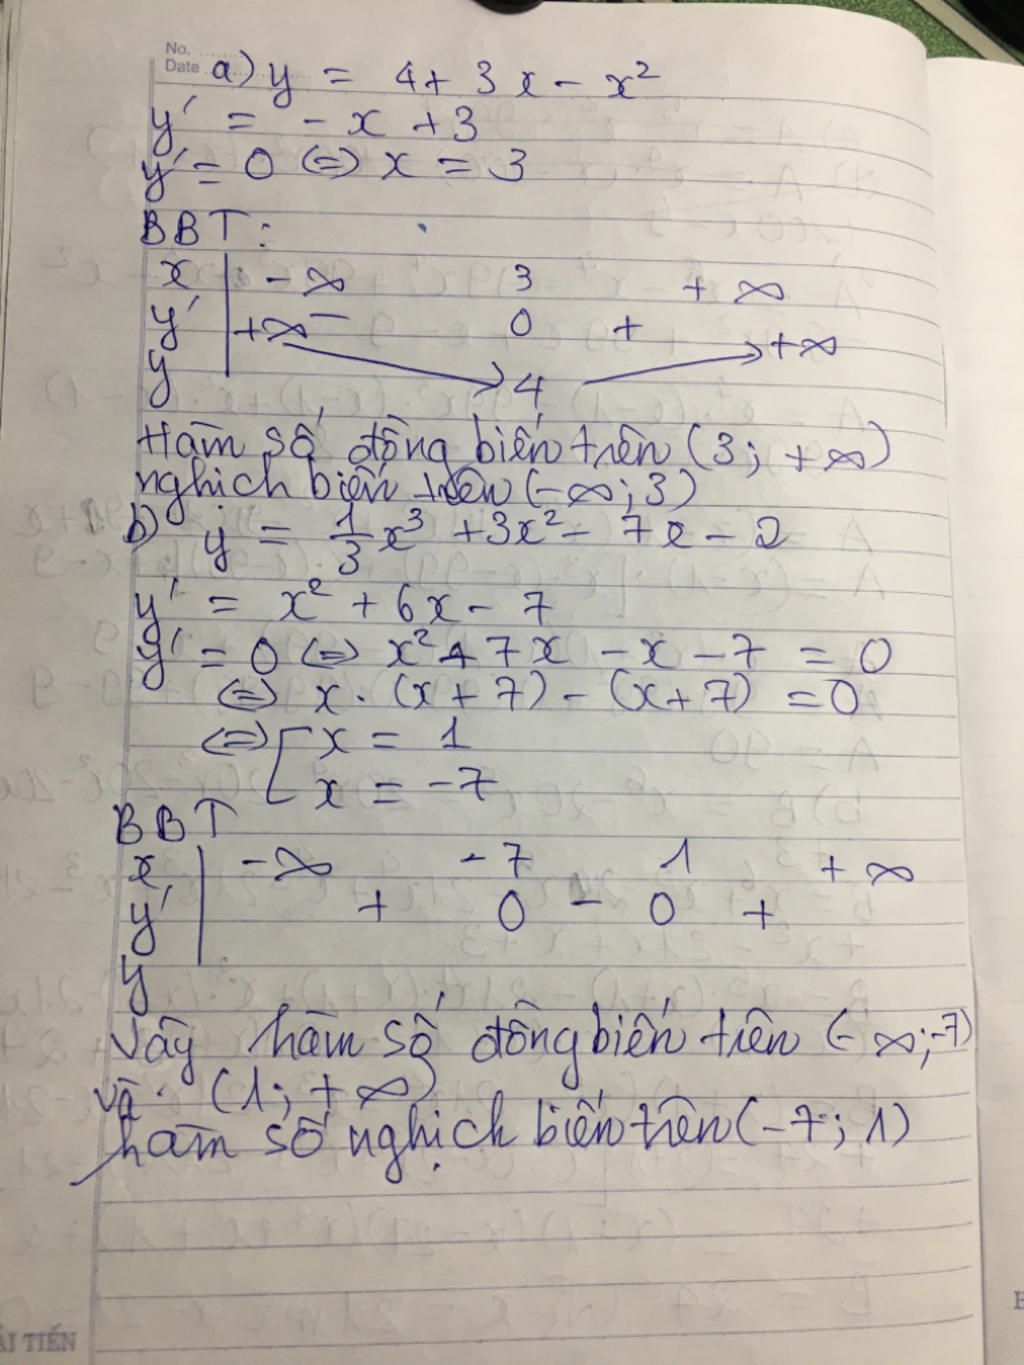 No.
Date
a) y = 4 + 3x - x²
y' = -x + 3
y' = 0 ⇔ x = 3
BBT:
x | -∞ 3 +∞
y' | - 0 +
y | +∞ 4 +∞
Hàm số đồng biến trên (3; +∞)
nghịch biến trên (-∞; 3)
b) y = 1/3 x³ + 3x² - 7x - 2
y' = x² + 6x - 7
y' = 0 ⇔ x² + 7x - x - 7 = 0
⇔ x . (x + 7) - (x + 7) = 0
⇔ [ x = 1
x = -7
BBT
x | -∞ -7 1 +∞
y' | + 0 - 0 +
y
Vậy hàm số đồng biến trên (-∞; -7)
và (1; +∞)
hàm số nghịch biến trên (-7; 1)
ẢI TIẾN